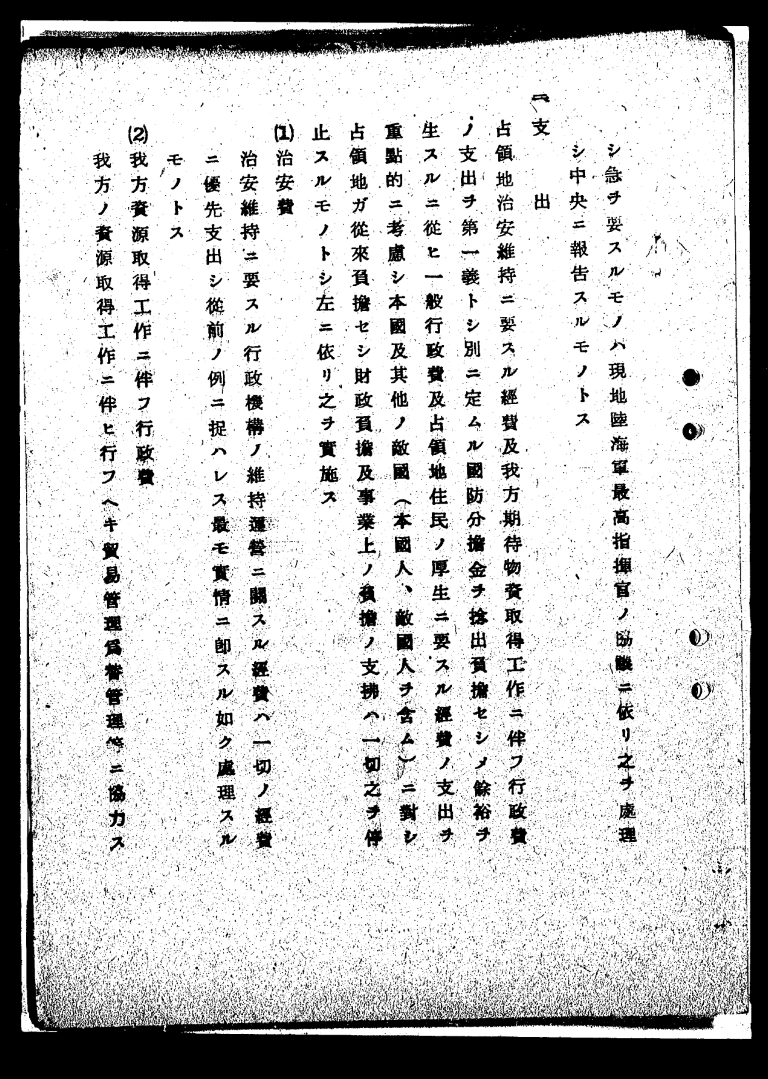 シ急ヲ要スルモノハ現地陸海軍最高指揮官ノ協議ニ依リ之ヲ處理
シ中央ニ報告スルモノトス
二支出
占領地治安維持ニ要スル經費及我方期待物資取得工作ニ伴フ行政費
ノ支出ヲ第一義トシ別ニ定ムル國防分擔金ヲ捻出負擔セシメ餘裕ヲ
生スルニ從ヒ一般行政費及占領地住民ノ厚生ニ要スル經費ノ支出ヲ
重點的ニ考慮シ本國及其他ノ敵國（本國人、敵國人ヲ含ム）ニ對シ
占領地ガ從來負擔セシ財政負擔及事業上ノ負擔ノ支拂ハ一切之ヲ停
止スルモノトシ左ニ依リ之ヲ實施ス
(1)治安費
治安維持ニ要スル行政機構ノ維持運營ニ關スル經費ハ一切ノ經費
ニ優先支出シ從前ノ例ニ捉ハレス最モ實情ニ卽スル如ク處理スル
モノトス
(2)我方資源取得工作ニ伴フ行政費
我方ノ資源取得工作ニ伴ヒ行フヘキ貿易管理爲替管理等ニ協力ス